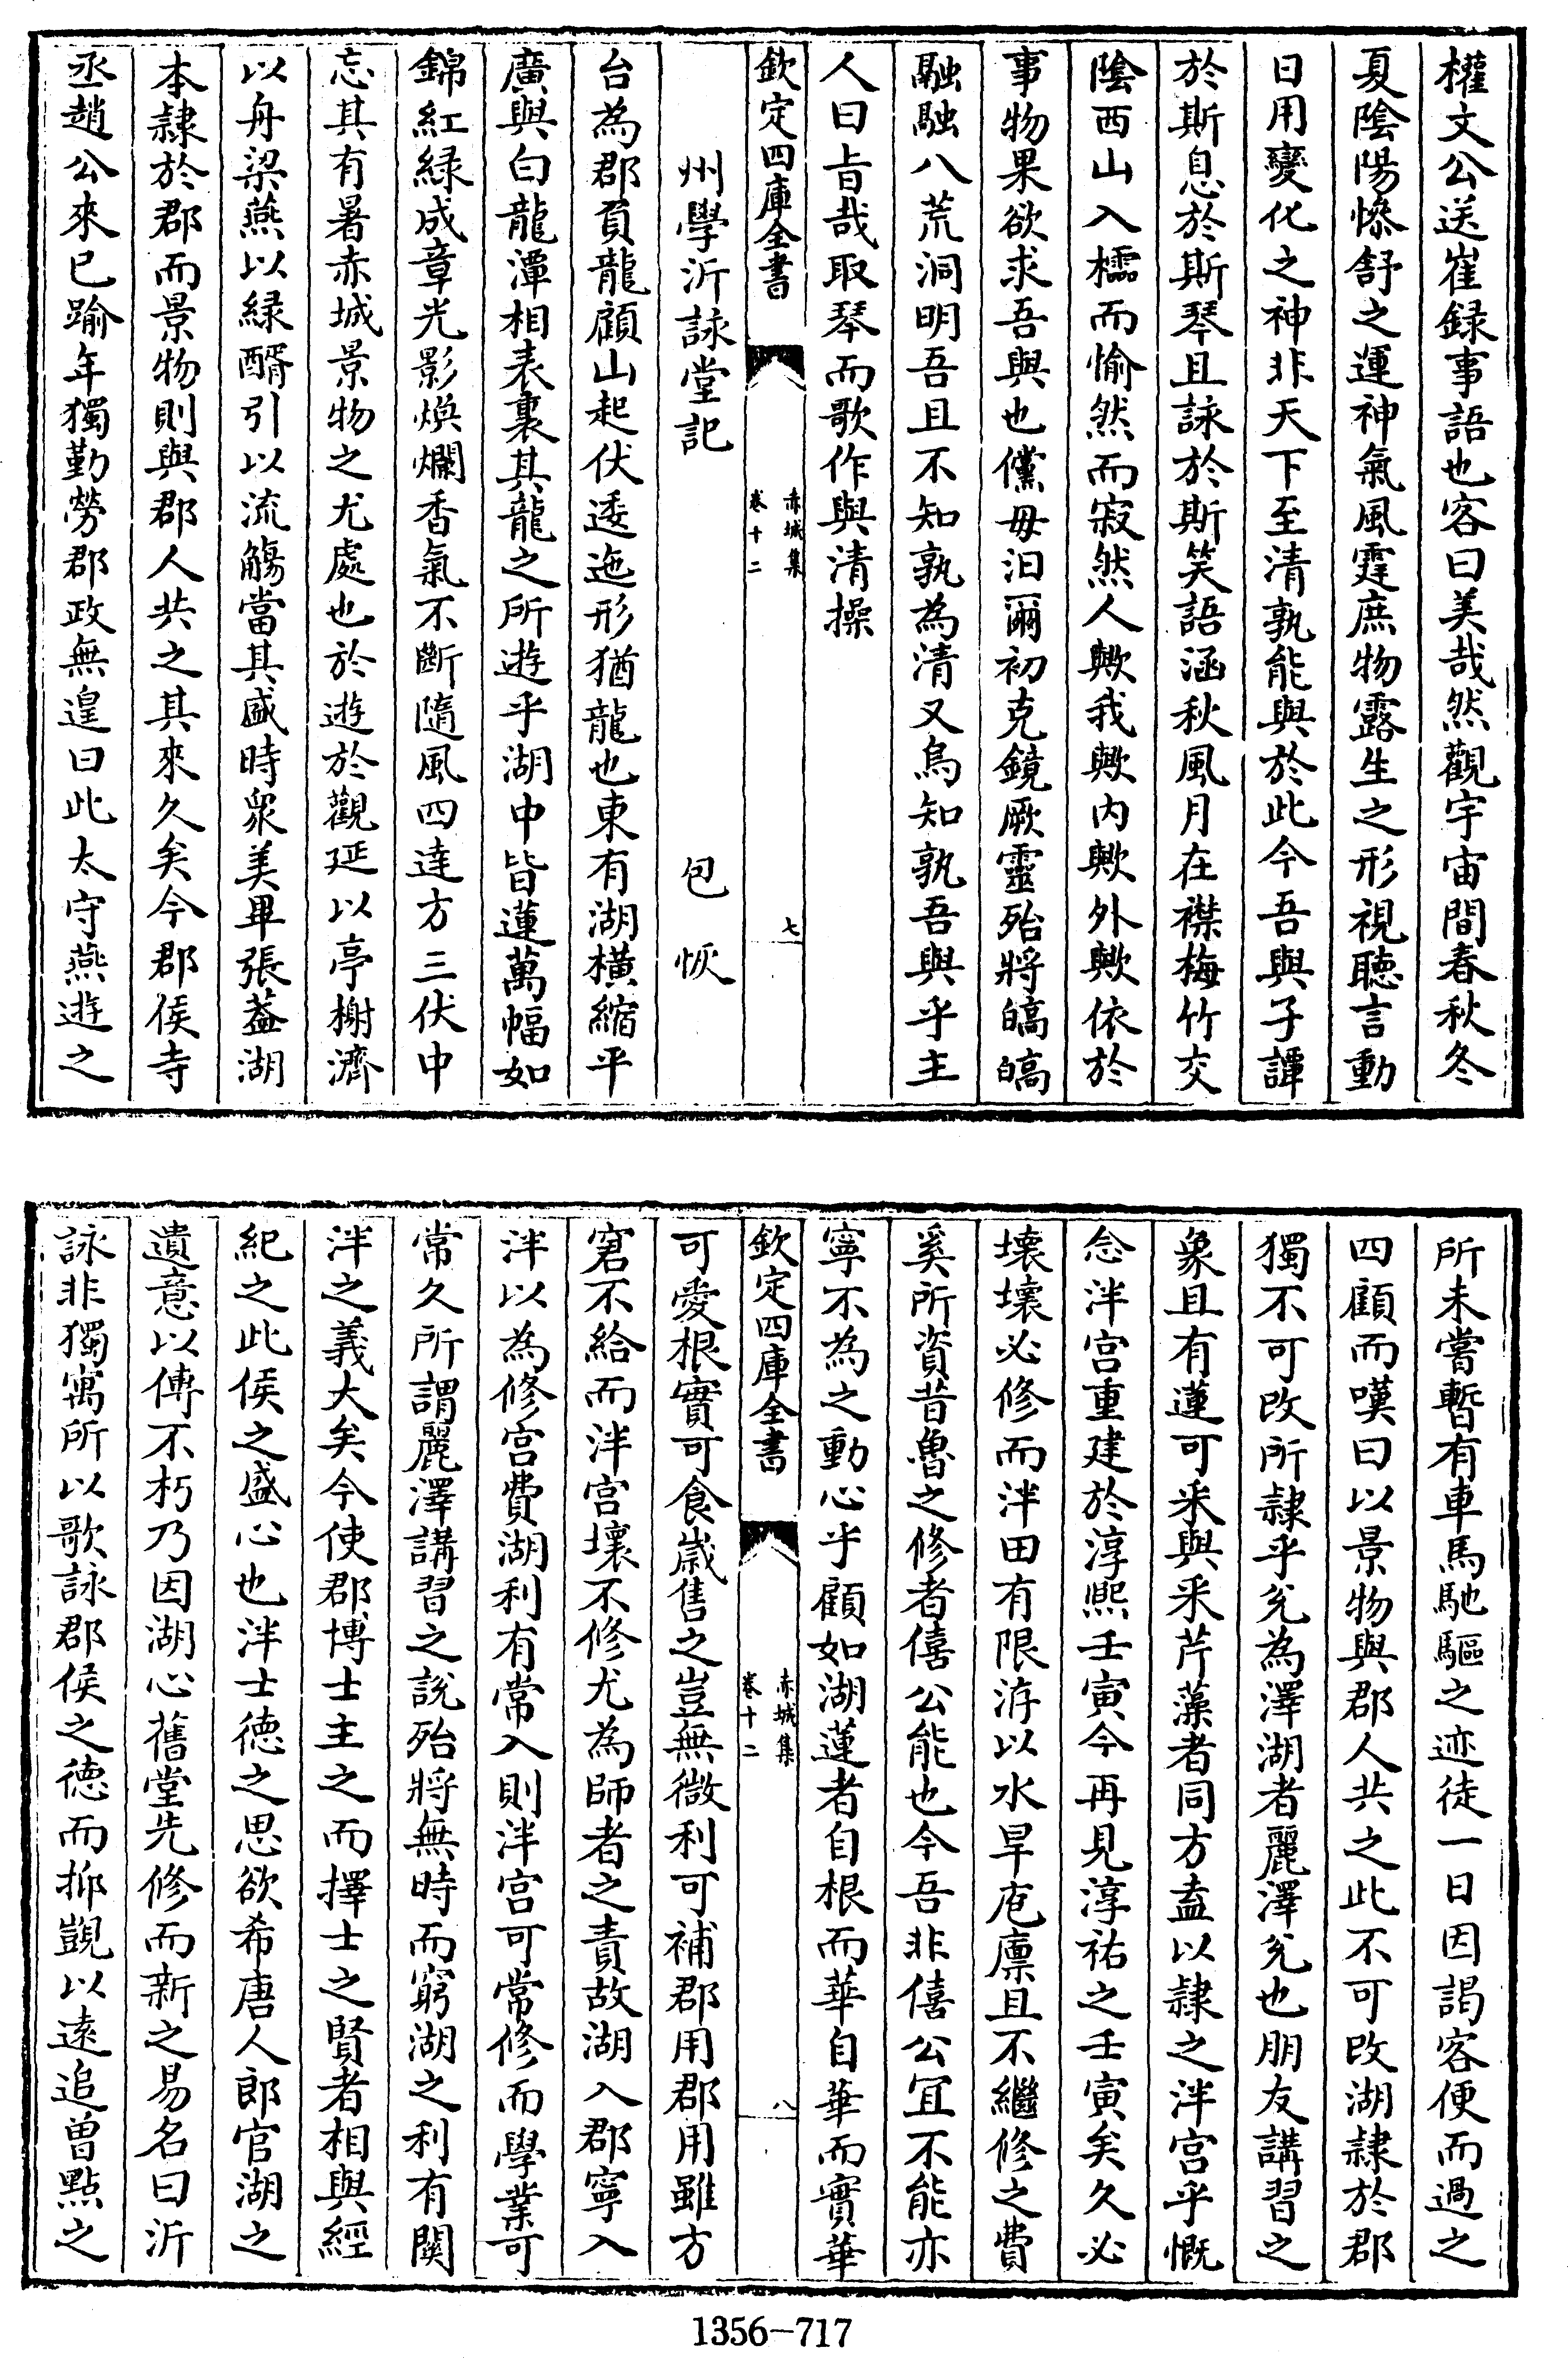 權文公送崔録事語也容曰美哉然觀宇宙間春秋冬
夏陰陽慘舒之運神氣風霆庶物露生之形視聽言動
日用變化之神非天下至清孰能與於此今吾與子譚
於斯息於斯琴且詠於斯笑語涵秋風月在襟梅竹交
陰西山入櫺而愉然而寂然人歟我歟内歟外歟依於
事物果欲求吾與也儻毋汩爾初克鏡厥靈殆將皜皜
融融八荒洞明吾且不知孰為清又烏知孰吾與乎主
人曰旨哉取琴而歌作與清操
欽定四庫全書
赤城集
卷十二
七
州學沂詠堂記
包恢
台為郡負龍顧山起伏逶迤形猶龍也東有湖橫縮平
廣與白龍潭相表裏其龍之所遊乎湖中皆蓮萬幅如
錦紅緑成章光影煥爛香氣不斷隨風四達方三伏中
忘其有暑赤城景物之尤處也於遊於觀延以亭榭濟
以舟梁燕以緑醑引以流觴當其盛時衆美畢張葢湖
本隸於郡而景物則與郡人共之其來久矣今郡侯寺
丞趙公來已踰年獨勤勞郡政無遑曰此太守燕遊之
所未嘗暫有車馬馳驅之迹徒一日因謁客便而過之
四顧而嘆曰以景物與郡人共之此不可改湖隸於郡
獨不可改所隸乎兊為澤湖者麗澤兊也朋友講習之
象且有蓮可采與采芹藻者同方盍以隸之泮宫乎慨
念泮宫重建於淳熙壬寅今再見淳祐之壬寅矣久必
壞壞必修而泮田有限洊以水旱庖廪且不繼修之費
奚所資昔魯之修者僖公能也今吾非僖公宜不能亦
寧不為之動心乎顧如湖蓮者自根而華自華而實華
欽定四庫全書
赤城集
卷十二
八
可愛根實可食歲售之豈無微利可補郡用郡用雖方
窘不給而泮宫壞不修尤為師者之責故湖入郡寧入
泮以為修宫費湖利有常入則泮宫可常修而學業可
常久所謂麗澤講習之説殆將無時而窮湖之利有闗
泮之義大矣今使郡博士主之而擇士之賢者相與經
紀之此侯之盛心也泮士徳之思欲希唐人郎官湖之
遺意以傳不朽乃因湖心舊堂先修而新之易名曰沂
詠非獨寓所以歌詠郡侯之徳而抑覬以遠追曽點之
1356-717